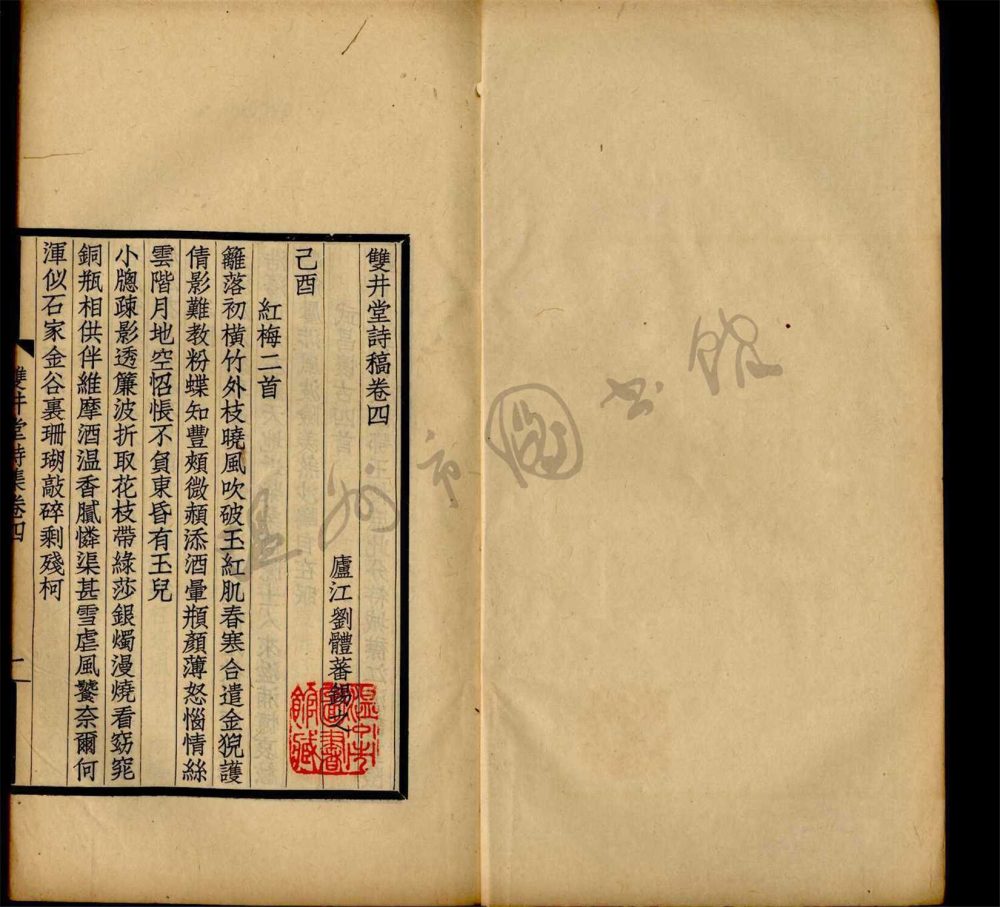 雙井堂詩稿卷四
廬江劉體蕃錫之
己酉
紅梅二首
籬落初橫竹外枝曉風吹破玉紅肌春寒合遣金猊護
倩影難教粉蝶知豐頰微頳添酒暈頩顏薄怒惱情絲
雲階月地空怊悵不負東昏有玉兒
小牕疎影透簾波折取花枝帶綠莎銀燭漫燒看窈窕
銅瓶相供伴維摩酒温香膩憐渠甚雪虐風饕奈爾何
渾似石家金谷裏珊瑚敲碎剩殘柯
雙井堂詩集卷四
一
温州市圖書館藏
温州市图书馆